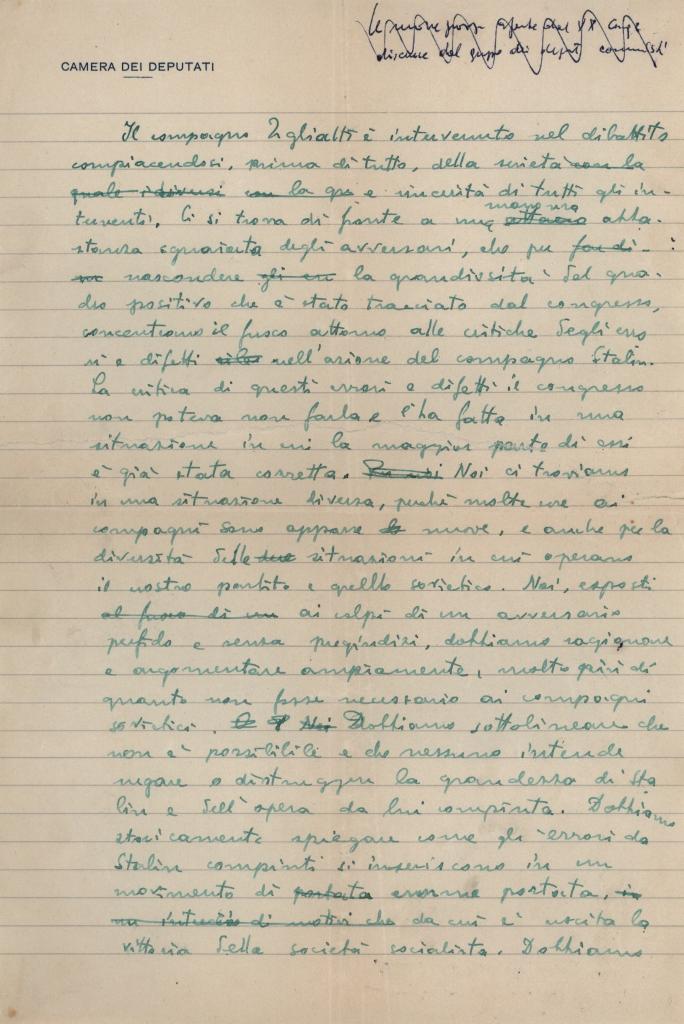 CAMERA DEI DEPUTATI
del XX
discusse dal gruppo dei deputati comunisti
Il compagno Togliatti è intervenuto nel dibattito
compiacendosi, prima di tutto, della serietà con la
quale i diversi con la qua e sincerità di tutti gli in-
terventi. Ci si trova di fronte a una manovra attacco abba-
stanza sguaiata degli avversari, che per
nascondere gli la grandiosità del qua-
dro positivo che è stato tracciato dal congresso,
concentrano il fuoco attorno alle critiche degli erro
ri e difetti nell'azione del compagno Stalin.
La critica di questi errori e difetti il congresso
non poteva non farla e l'ha fatta in una
situazione in cui la maggior parte di essi
è già stata corretta. Noi ci troviamo
in una situazione diversa, perché molte cose ai
compagni sono apparse nuove, e anche per la
diversità delle due situazioni in cui operano
il nostro partito e quello sovietico. Noi, esposti
al fuoco di un ai colpi di un avversario
perfido e senza pregiudizi, dobbiamo ragionare
e argomentare ampiamente, molto più di
quanto non fosse necessario ai compagni
sovietici. Noi Dobbiamo sottolineare che
non è possibilile e che nessuno intende
negare o distruggere la grandezza di Sta
lin e dell'opera da lui compiuta. Dobbiamo
storicamente spiegare come gli errori da
Stalin compiuti si inseriscono in un
movimento di portata enorme portata, in
un intreccio di motivi che da cui è uscita la
vittoria della società socialista. Dobbiamo